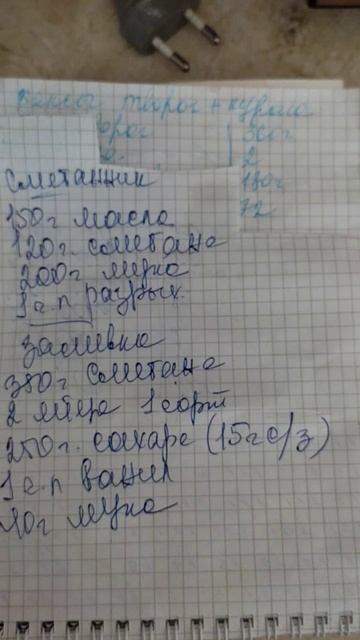 кексы творог + курага
орог 360г
2
Сметанник 180г
72
150г масла
120г. сметана
200г мука
1 ч.л разрых.
Заливка
350г сметана
2 яйца 1 сорт
250г. сахара (15г с/з)
1 ч.л ванил
40г мука